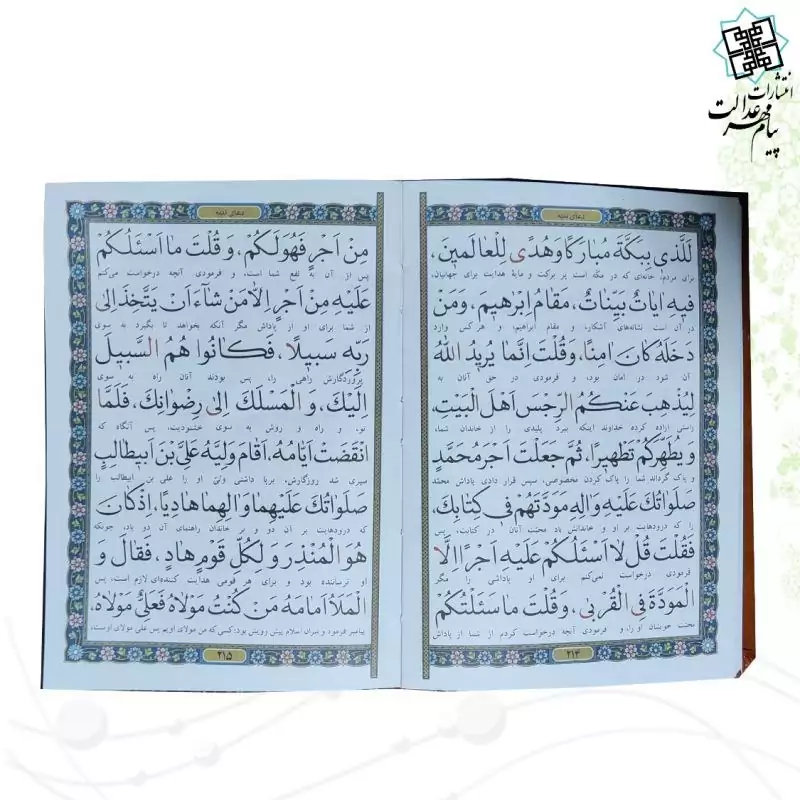 انتشارات
پیام مهر عدالت
دعای ندبه
لَلَّذى بِبَكَّةَ مُبارَكًا وَهُدًى لِلْعالَمينَ،
برای مردم، خانه‌ای که در مکّه است پر برکت و مایهٔ هدایت برای جهانیان،
فيهِ اياتٌ بَيِّناتٌ، مَقامُ اِبْرهيمَ، وَمَنْ
در آن است نشانه‌های آشکار، و مقام ابراهیم، و هر کس وارد
دَخَلَهُ كانَ امِنًا، وَقُلْتَ اِنَّما يُريدُ اللهُ
آن شود در امان بود، و فرمودی در حق آنان به
لِيُذْهِبَ عَنْكُمُ الرِّجْسَ اَهْلَ الْبَيْتِ،
راستی اراده کرده خداوند اینکه ببرد پلیدی را از خاندان شما،
وَيُطَهِّرَكُمْ تَطْهيرًا، ثُمَّ جَعَلْتَ اَجْرَ مُحَمَّدٍ
و پاک گرداند شما را پاک کردن مخصوصی، سپس قرار دادی پاداش محمّد
صَلَواتُكَ عَلَيْهِ وَالِهِ مَوَدَّتَهُمْ فى كِتابِكَ،
را که درودهایت بر او و خاندانش باد محبّت آنان در کتابت، پس
فَقُلْتَ قُلْ لا اَسْئَلُكُمْ عَلَيْهِ اَجْرًا اِلَّا
فرمودی درخواست نمی‌کنم برای او پاداشی را مگر
الْمَوَدَّةَ فِى الْقُرْبى، وَقُلْتَ ما سَئَلْتُكُمْ
محبّت خویشان او را، و فرمودی آنچه درخواست کردم از شما از پاداش
۲۱۴
دعای ندبه
مِنْ اَجْرٍ فَهُوَلَكُمْ، وَقُلْتَ ما اَسْئَلُكُمْ
پس از آن به نفع شما است، و فرمودی آنچه درخواست می‌کنم
عَلَيْهِ مِنْ اَجْرٍ اِلَّا مَنْ شاءَ اَنْ يَتَّخِذَ اِلى
از شما برای او از پاداش مگر آنکه بخواهد تا بگیرد به سوی
رَبِّهِ سَبيلًا، فَكانُوا هُمُ السَّبيلَ
پروردگارش راهی را، پس بودند آنان راه به سوی
اِلَيْكَ، وَالْمَسْلَكَ اِلى رِضْوانِكَ، فَلَمَّا
تو، و راه و روش به سوی خشنودیت، پس آنگاه که
انْقَضَتْ اَيّامُهُ، اَقامَ وَلِيَّهُ عَلِىَّ بْنَ اَبيطالِبٍ
سپری شد روزگارش، برپا داشتی ولیّ او را علی بن ابیطالب را
صَلَواتُكَ عَلَيْهِما وَالِهِما هادِيًا، اِذْ كانَ
که درودهایت بر آن دو و بر خاندان راهنمای آن دو باد، چونکه
هُوَ الْمُنْذِرَ وَلِكُلِّ قَوْمٍ هادٍ، فَقالَ وَ
او ترساننده بود و برای هر قومی هدایت کننده‌ای لازم است، پس
الْمَلَأُ اَمامَهُ مَنْ كُنْتُ مَوْلاهُ فَعَلِىٌّ مَوْلاهُ،
پیامبر فرمود و سران اسلام پیش رویش بود: کسی که من مولای اویم پس علی مولای اوست،
۲۱۵